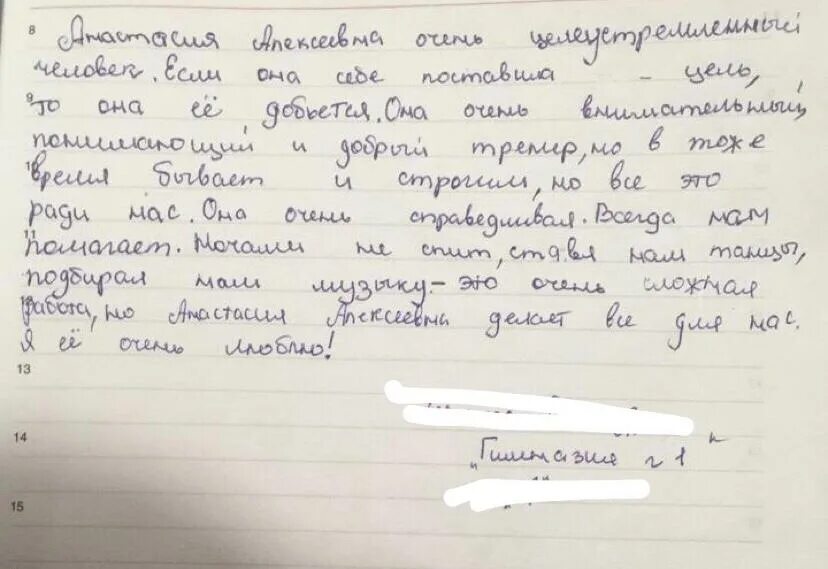 8 Анастасия Алексеевна очень целеустремленный
человек. Если она себе поставила - цель,
9 то она её добьется. Она очень внимательный,
понимающий и добрый тренер, но в тоже
10 время бывает и строгим, но все это
ради нас. Она очень справедливая. Всегда нам
11 помогает. Ночами не спит, ставя нам танцы,
подбирая нам музыку - это очень сложная
12 работа, но Анастасия Алексеевна делает все для нас.
Я её очень люблю!
13
14 "Гимназия г 1"
15